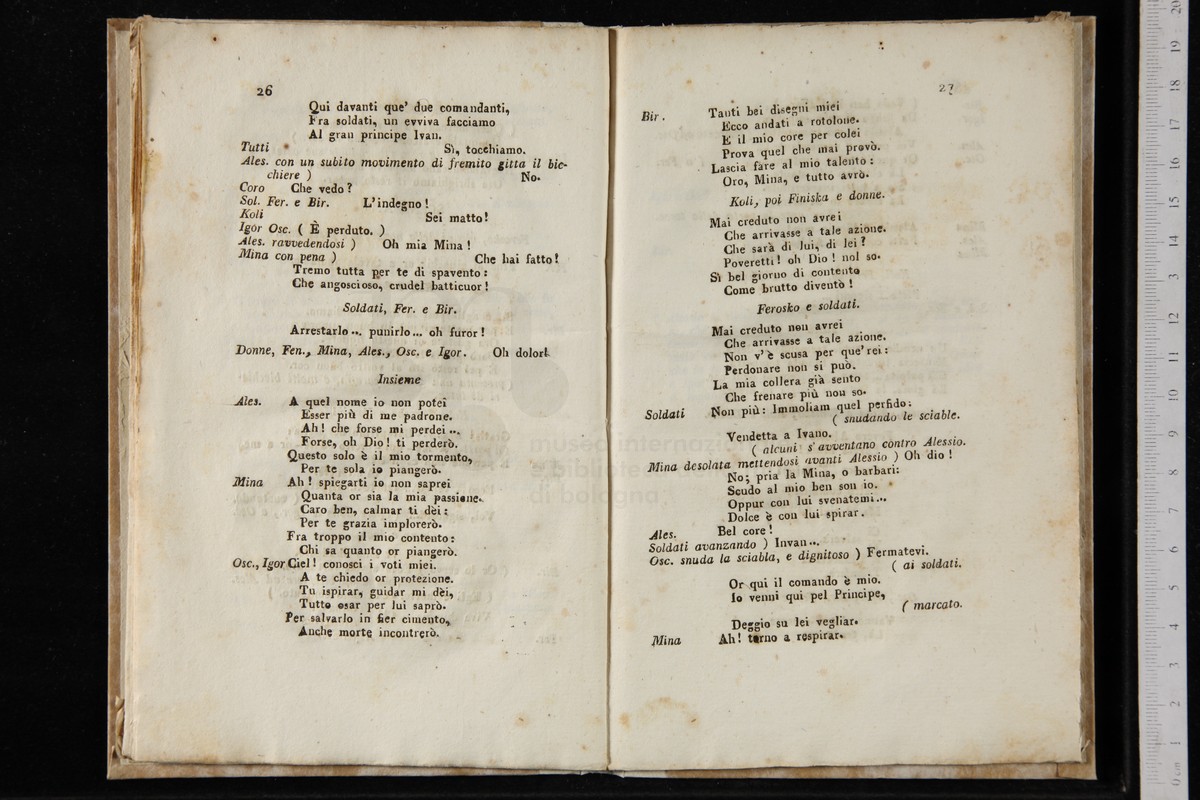 26
Qui davanti que' due comandanti,
Fra soldati, un evviva facciamo
Al gran principe Ivan.
Tutti Sì, tocchiamo.
Ales. con un subito movimento di fremito gitta il bic-
chiere ) No.
Coro Che vedo?
Sol. Fer. e Bir. L'indegno!
Koli Sei matto!
Igor Osc. ( È perduto. )
Ales. ravvedendosi ) Oh mia Mina!
Mina con pena ) Che hai fatto!
Tremo tutta per te di spavento:
Che angoscioso, crudel batticuor!
Soldati, Fer. e Bir.
Arrestarlo... punirlo... oh furor!
Donne, Fen., Mina, Ales., Osc. e Igor. Oh dolor!
Insieme
Ales. A quel nome io non potei
Esser più di me padrone.
Ah! che forse mi perdei...
Forse, oh Dio! ti perderò.
Questo solo è il mio tormento,
Per te sola io piangerò.
Mina Ah! spiegarti io non saprei
Quanta or sia la mia passione.
Caro ben, calmar ti dèi:
Per te grazia implorerò.
Fra troppo il mio contento:
Chi sa quanto or piangerò.
Osc., Igor Ciel! conosci i voti miei.
A te chiedo or protezione.
Tu ispirar, guidar mi dèi,
Tutto osar per lui saprò.
Per salvarlo in fier cimento,
Anche morte incontrerò.
27
Bir. Tanti bei disegni miei
Ecco andati a rotolone.
E il mio core per colei
Prova quel che mai provò.
Lascia fare al mio talento:
Oro, Mina, e tutto avrò.
Koli, poi Finiska e donne.
Mai creduto non avrei
Che arrivasse a tale azione.
Che sarà di lui, di lei?
Poveretti! oh Dio! nol so.
Sì bel giorno di contento
Come brutto diventò!
Ferosko e soldati.
Mai creduto non avrei
Che arrivasse a tale azione.
Non v'è scusa per que' rei:
Perdonare non si può.
La mia collera già sento
Che frenare più non so.
Soldati Non più: Immoliam quel perfido:
( snudando le sciable.
Vendetta a Ivano.
( alcuni s'avventano contro Alessio.
Mina desolata mettendosi avanti Alessio ) Oh dio!
No; pria la Mina, o barbari:
Scudo al mio ben son io.
Oppur con lui svenatemi...
Dolce è con lui spirar.
Ales. Bel core!
Soldati avanzando ) Invan...
Osc. snuda la sciabla, e dignitoso ) Fermatevi.
( ai soldati.
Or qui il comando è mio.
Io venni qui pel Principe,
( marcato.
Deggio su lei vegliar.
Mina Ah! torno a respirar.
museo internazio
e bibliote
di bologna